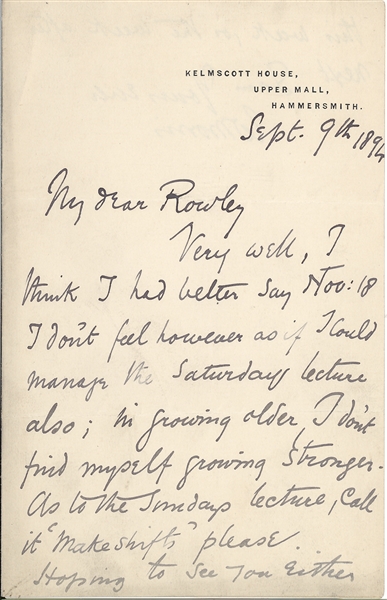 KELMSCOTT HOUSE,
UPPER MALL,
HAMMERSMITH.
Sept. 9th 1894
My dear Rowley
Very well, I
think I had better say Nov: 18
I don't feel however as if I could
manage the Saturdays lecture
also; in growing older, I don't
find myself growing stronger.
As to the Sundays lecture, call
it "Makeshifts" please.
Hoping to see you Either